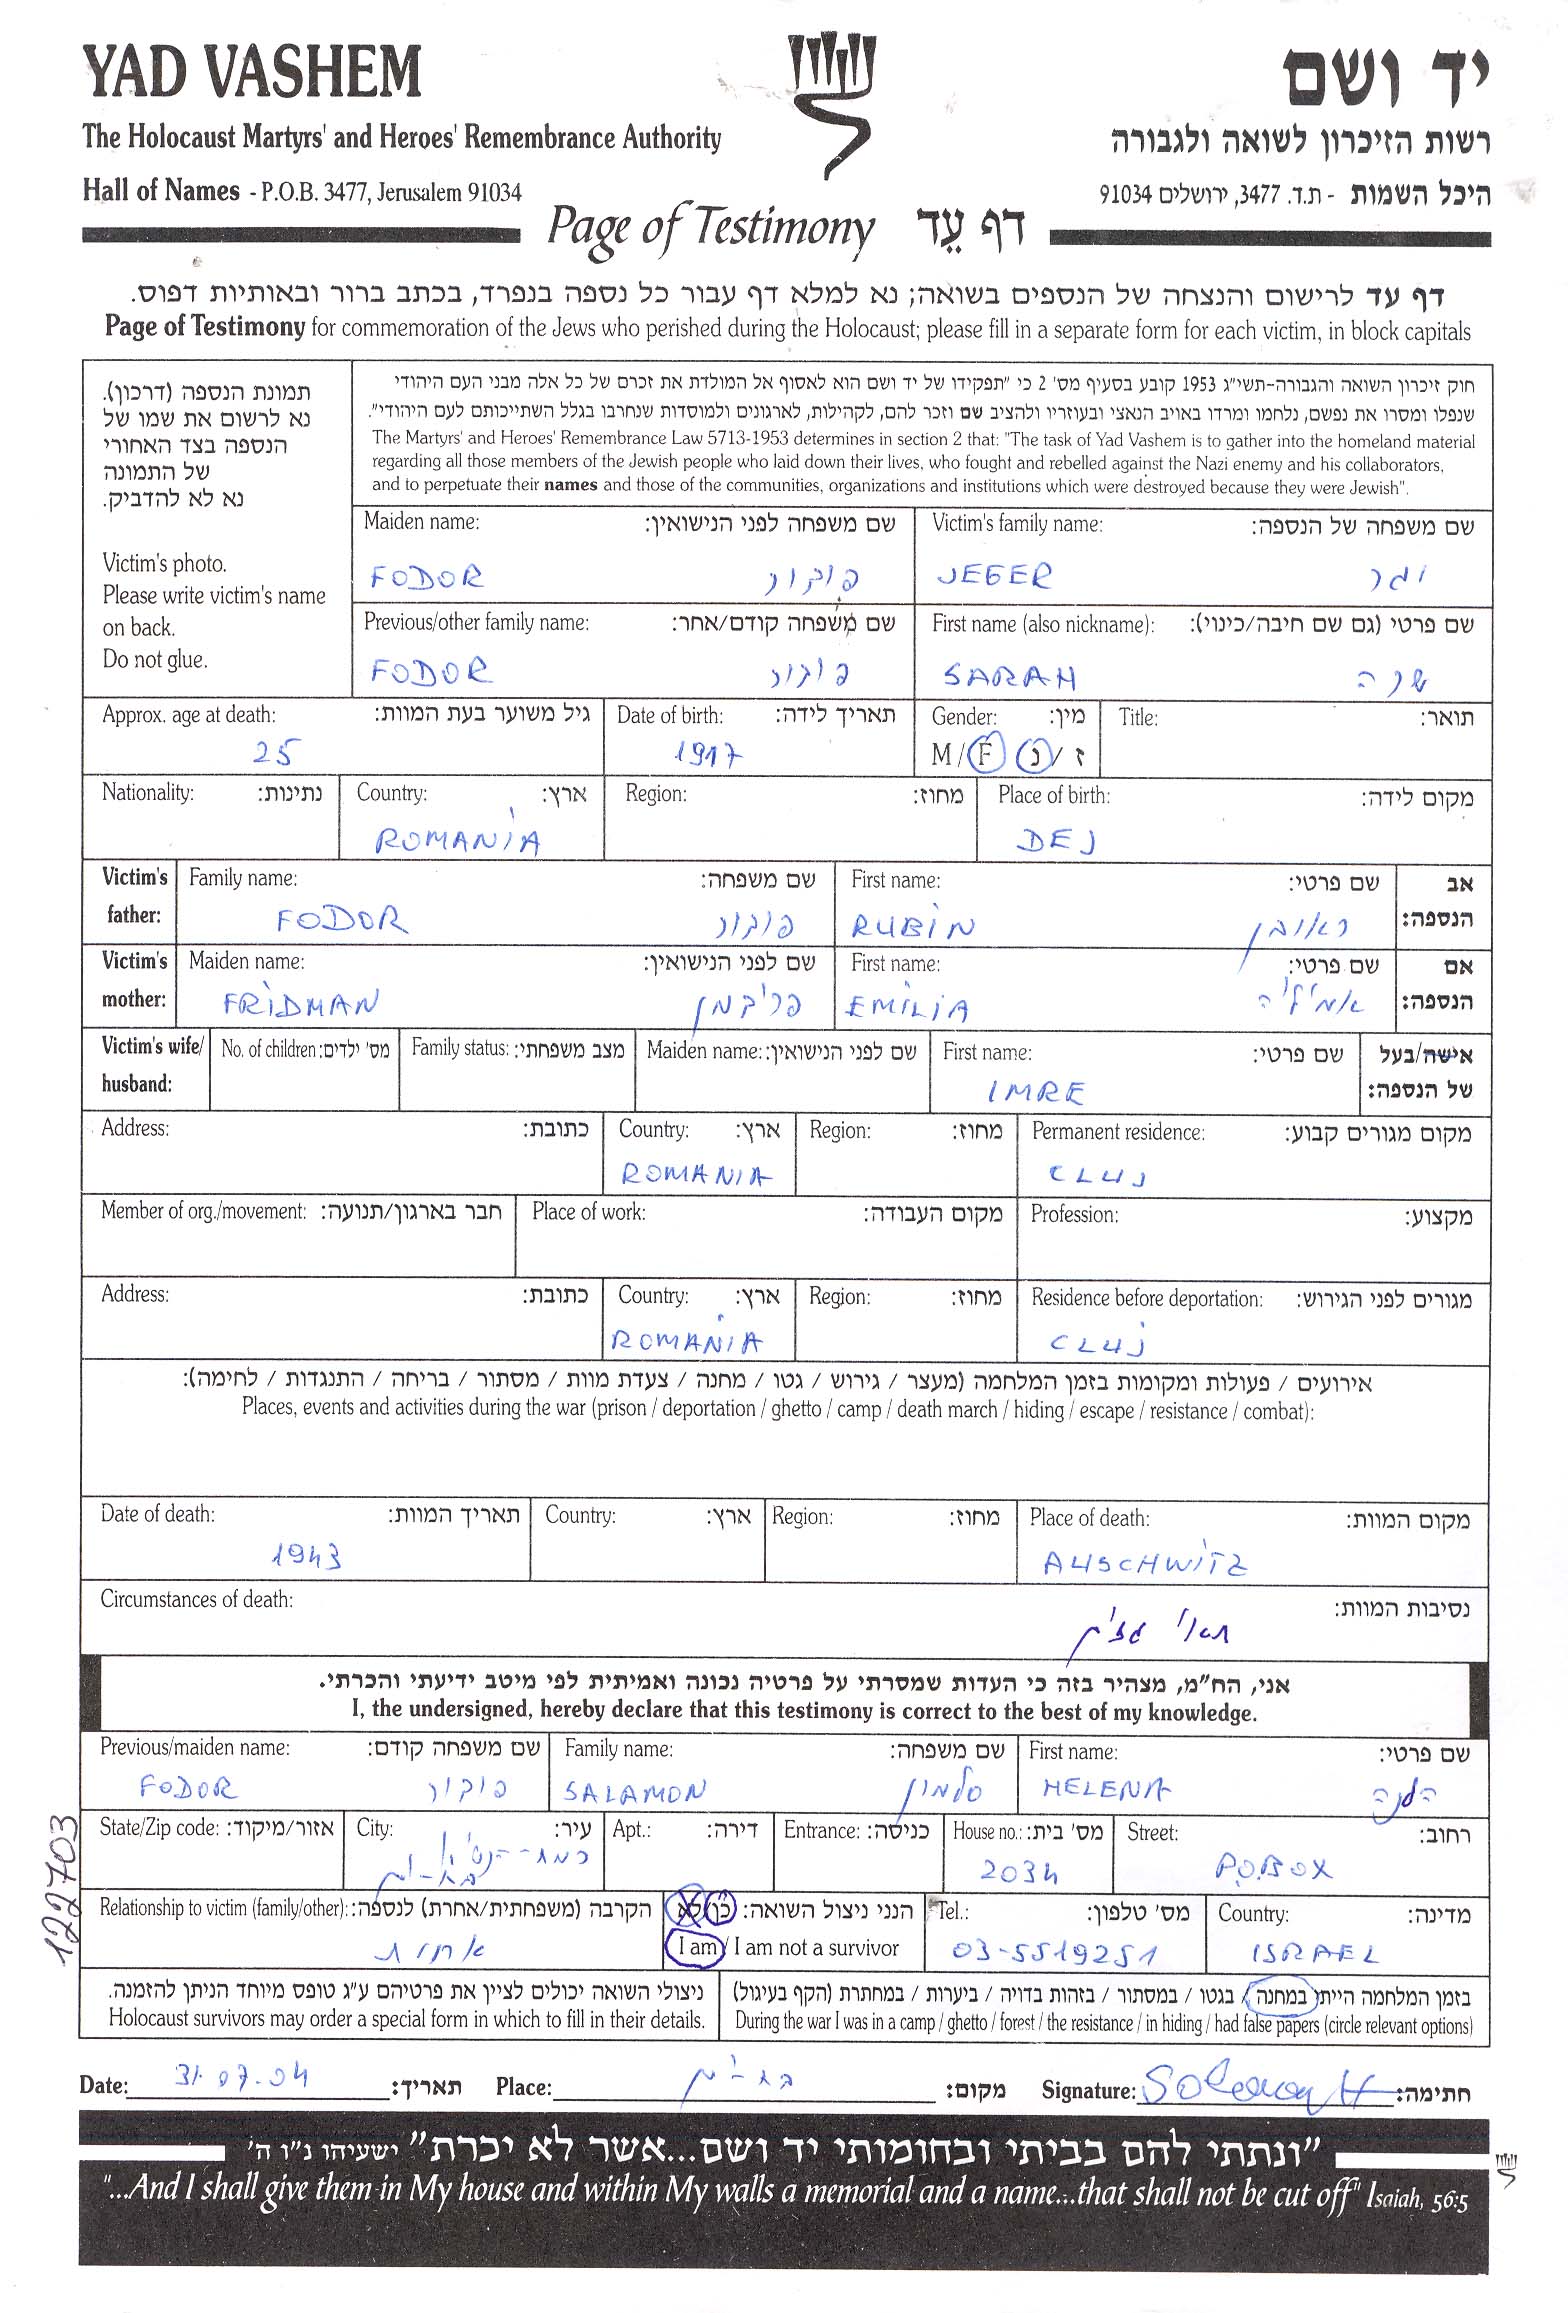 YAD VASHEM
יד ושם
The Holocaust Martyrs' and Heroes' Remembrance Authority
רשות הזיכרון לשואה ולגבורה
Hall of Names - P.O.B. 3477, Jerusalem 91034
היכל השמות - ת.ד. 3477, ירושלים 91034
Page of Testimony דף עֵד
דף עד לרישום והנצחה של הנספים בשואה; נא למלא דף עבור כל נספה בנפרד, בכתב ברור ובאותיות דפוס.
Page of Testimony for commemoration of the Jews who perished during the Holocaust; please fill in a separate form for each victim, in block capitals
תמונת הנספה (דרכון).
נא לרשום את שמו של
הנספה בצד האחורי
של התמונה
נא לא להדביק.
Victim's photo.
Please write victim's name
on back.
Do not glue.
חוק זיכרון השואה והגבורה-תשי"ג 1953 קובע בסעיף מס' 2 כי "תפקידו של יד ושם הוא לאסוף אל המולדת את זכרם של כל אלה מבני העם היהודי
שנפלו ומסרו את נפשם, נלחמו ומרדו באויב הנאצי ובעוזריו ולהציב שם וזכר להם, לקהילות, לארגונים ולמוסדות שנחרבו בגלל השתייכותם לעם היהודי".
The Martyrs' and Heroes' Remembrance Law 5713-1953 determines in section 2 that: "The task of Yad Vashem is to gather into the homeland material
regarding all those members of the Jewish people who laid down their lives, who fought and rebelled against the Nazi enemy and his collaborators,
and to perpetuate their names and those of the communities, organizations and institutions which were destroyed because they were Jewish".
Maiden name: שם משפחה לפני הנישואין: Victim's family name: שם משפחה של הנספה:
FODOR פודור JEGER יגר
Previous/other family name: שם משפחה קודם/אחר: First name (also nickname): שם פרטי (גם שם חיבה/כינוי):
FODOR פודור SARAH שרה
Approx. age at death: גיל משוער בעת המוות: Date of birth: תאריך לידה: Gender: מין: Title: תואר:
25 1917 M / F ז / נ
Nationality: נתינות: Country: ארץ: Region: מחוז: Place of birth: מקום לידה:
ROMANIA DEJ
Victim's father: Family name: שם משפחה: First name: שם פרטי: אב הנספה:
FODOR פודור RUBIN ראובן
Victim's mother: Maiden name: שם לפני הנישואין: First name: שם פרטי: אם הנספה:
FRIDMAN פרידמן EMILIA אמיליה
Victim's wife/ husband: No. of children: מס' ילדים: Family status: מצב משפחתי: Maiden name: שם לפני הנישואין: First name: שם פרטי: אישה/בעל של הנספה:
IMRE
Address: כתובת: Country: ארץ: Region: מחוז: Permanent residence: מקום מגורים קבוע:
ROMANIA CLUJ
Member of org./movement: חבר בארגון/תנועה: Place of work: מקום העבודה: Profession: מקצוע:
Address: כתובת: Country: ארץ: Region: מחוז: Residence before deportation: מגורים לפני הגירוש:
ROMANIA CLUJ
אירועים / פעולות ומקומות בזמן המלחמה (מעצר / גירוש / גטו / מחנה / צעדת מוות / מסתור / בריחה / התנגדות / לחימה):
Places, events and activities during the war (prison / deportation / ghetto / camp / death march / hiding / escape / resistance / combat):
Date of death: תאריך המוות: Country: ארץ: Region: מחוז: Place of death: מקום המוות:
1943 AUSCHWITZ
Circumstances of death: נסיבות המוות:
תאי גזים
אני, הח"מ, מצהיר בזה כי העדות שמסרתי על פרטיה נכונה ואמיתית לפי מיטב ידיעתי והכרתי.
I, the undersigned, hereby declare that this testimony is correct to the best of my knowledge.
Previous/maiden name: שם משפחה קודם: Family name: שם משפחה: First name: שם פרטי:
FODOR פודור SALAMON סלמון HELENA הלנה
State/Zip code: אזור/מיקוד: City: עיר: Apt.: דירה: Entrance: כניסה: House no.: מס' בית: Street: רחוב:
רמת-הנשיא
בת-ים 2034 P.O.BOX
Relationship to victim (family/other): הקרבה (משפחתית/אחרת) לנספה: הנני ניצול השואה: כן/לא Tel.: מס' טלפון: Country: מדינה:
אחות I am / I am not a survivor 03-5519251 ISRAEL
ניצולי השואה יכולים לציין את פרטיהם ע"ג טופס מיוחד הניתן להזמנה.
Holocaust survivors may order a special form in which to fill in their details.
בזמן המלחמה הייתי במחנה / בגטו / במסתור / בזהות בדויה / ביערות / במחתרת (הקף בעיגול)
During the war I was in a camp / ghetto / forest / the resistance / in hiding / had false papers (circle relevant options)
Date: 31.07.04 תאריך: Place: בת-ים מקום: Signature: Salamon H חתימה:
"ונתתי להם בביתי ובחומותי יד ושם...אשר לא יכרת" ישעיהו נ"ו ה'
"...And I shall give them in My house and within My walls a memorial and a name...that shall not be cut off" Isaiah, 56:5
122703